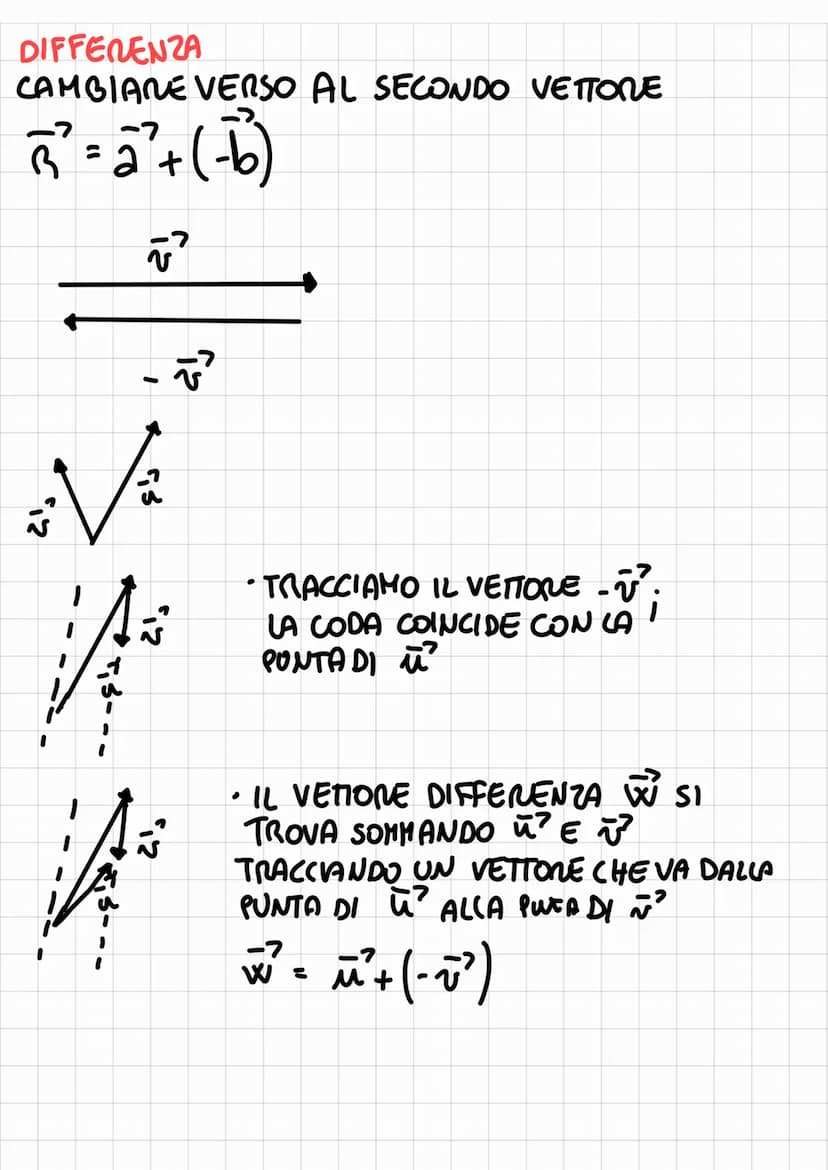 DIFFERENZA
CAMBIARE VERSO AL SECONDO VETTORE
R⃗ = a⃗ + (-b⃗)
v⃗
- v⃗
v⃗ u⃗
· TRACCIAMO IL VETTORE - v⃗ ;
LA CODA COINCIDE CON LA
PUNTA DI u⃗
v⃗
u⃗
· IL VETTORE DIFFERENZA w⃗ SI
TROVA SOMMANDO u⃗ E v⃗
TRACCIANDO UN VETTORE CHE VA DALLA
PUNTA DI u⃗ ALLA PUNTA DI v⃗
v⃗
u⃗
w⃗ = u⃗ + (-v⃗)